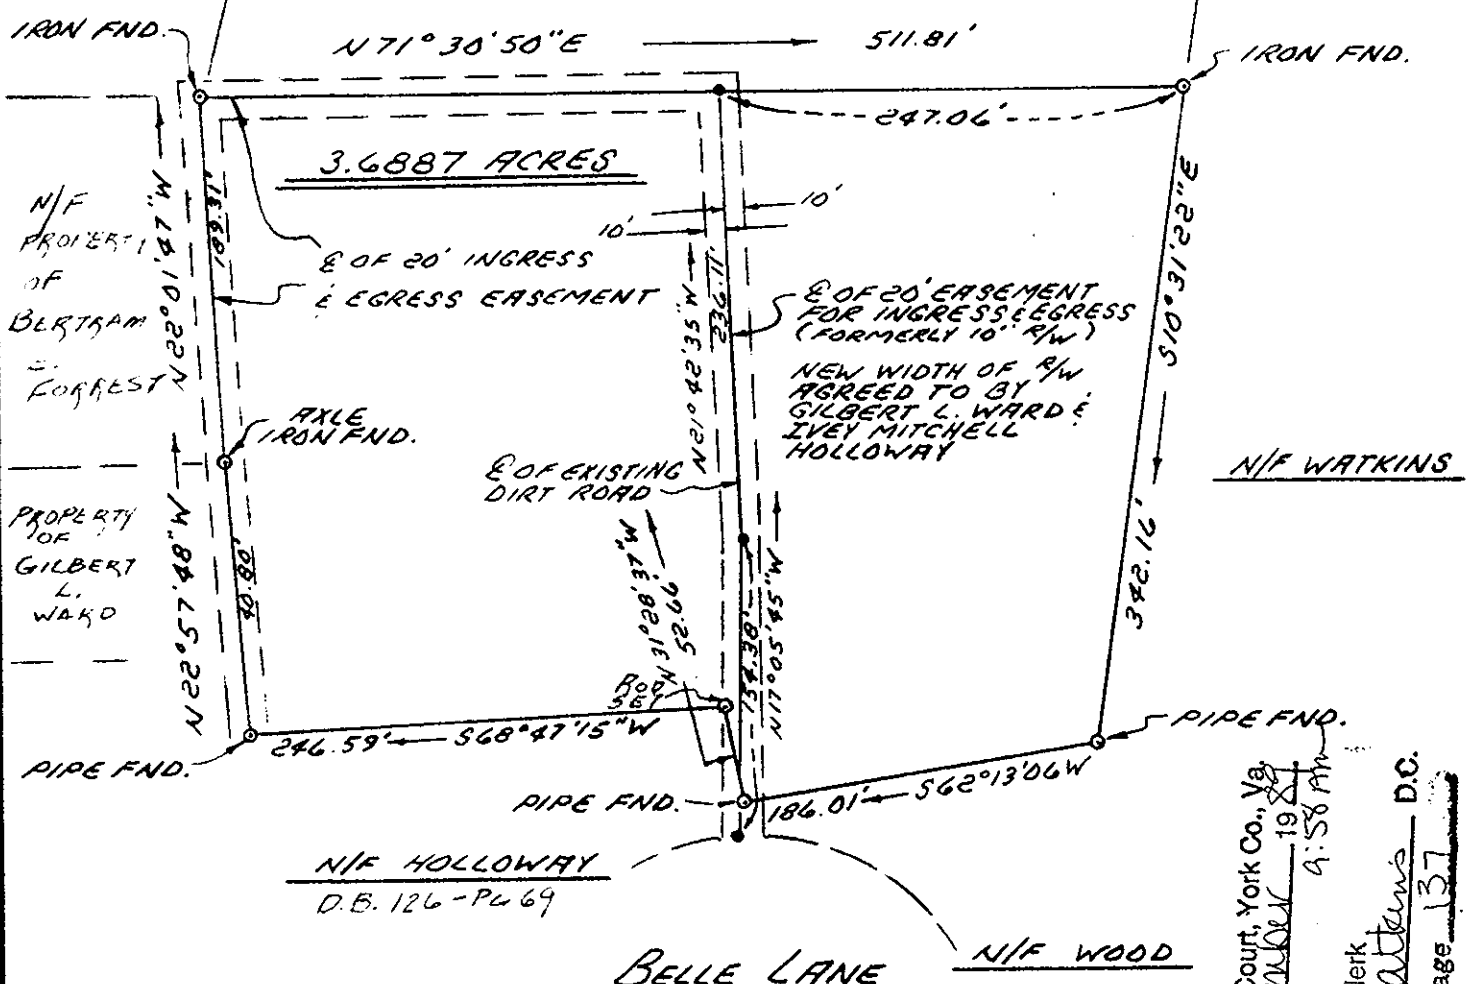 IRON FND.
N71°30'50"E
511.81'
IRON FND.
247.06'
3.6887 ACRES
N/F
PROPERTY
OF
BERTRAM
FORREST
N22°01'47"W
189.31'
10'
10'
℄ OF 20' INGRESS
& EGRESS EASEMENT
N21°42'35"W
236.11'
℄ OF 20' EASEMENT
FOR INGRESS & EGRESS
(FORMERLY 10' R/W)
NEW WIDTH OF R/W
AGREED TO BY
GILBERT L. WARD &
IVEY MITCHELL
HOLLOWAY
S10°31'22"E
342.16'
N/F WATKINS
AXLE
IRON FND.
℄ OF EXISTING
DIRT ROAD
PROPERTY
OF
GILBERT
L.
WARD
N22°57'48"W
N31°28'37"W
52.66'
154.38'
N17°05'45"W
ROD
SET
246.59' S68°47'15"W
PIPE FND.
PIPE FND.
186.01' S62°13'06"W
PIPE FND.
N/F HOLLOWAY
D.B. 126-PG 69
BELLE LANE
N/F WOOD
Court, York Co., Va.
19
9:58 AM
D.C.
137